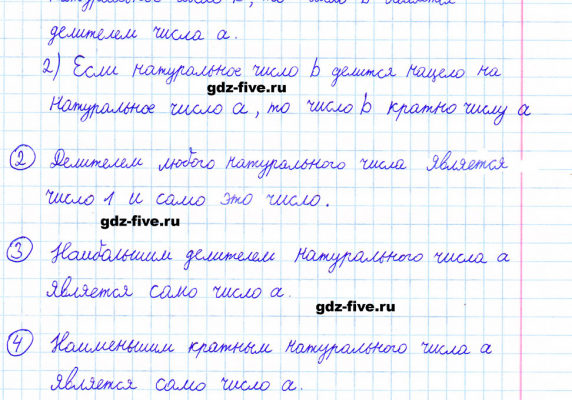 делителем числа а.
2) Если натуральное число b делится нацело на
gdz-five.ru
натуральное число а, то число b кратно числу а
2 Делителем любого натурального числа является
число 1 и само это число.
gdz-five.ru
3 Наибольшим делителем натурального числа а
является само число а.
gdz-five.ru
4 Наименьшим кратным натурального числа а
является само число а.